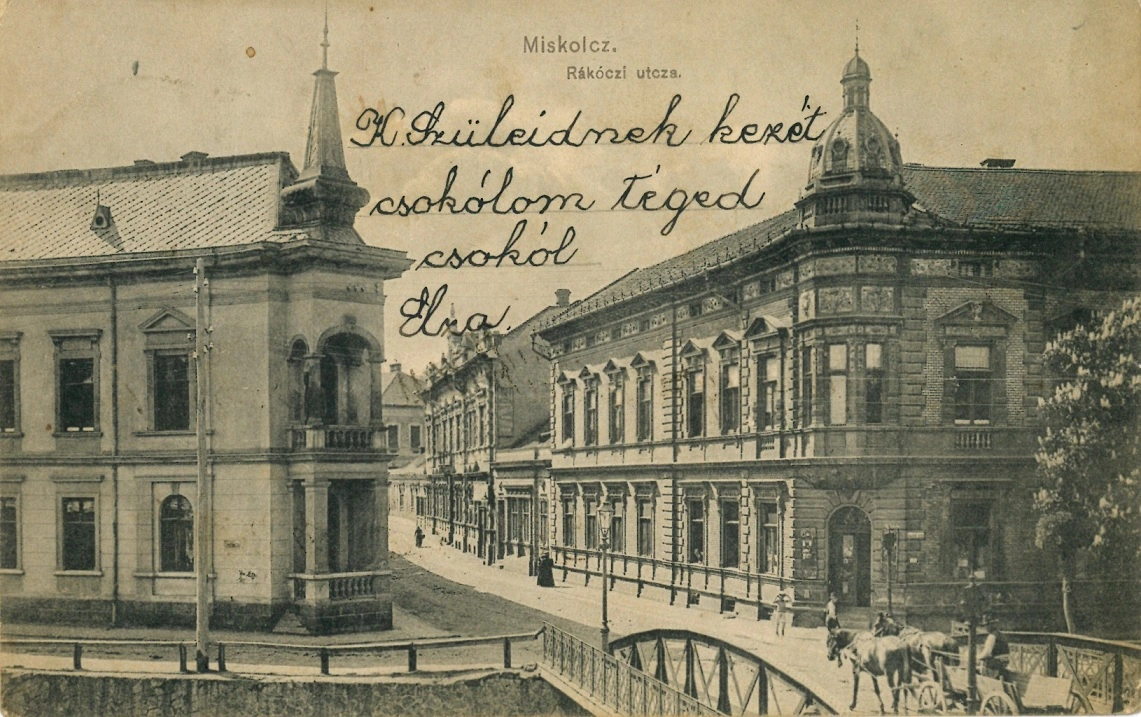 Miskolcz.
Rákóczi utcza.
K. Szüleidnek kezét
csokólom téged
csokól
Elza.